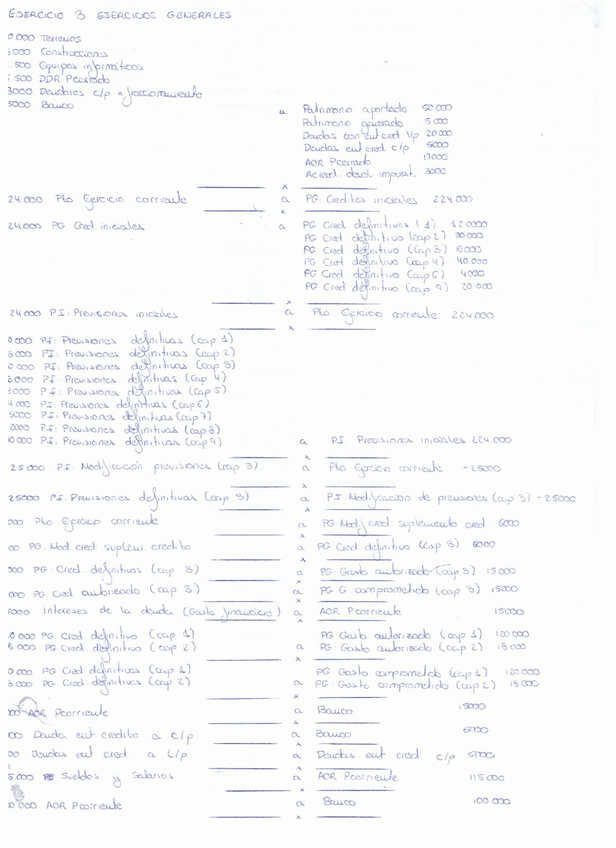 EJERCICIO 3 EJERCICIOS GENERALES
0000 Terrenos
5000 Construcciones
500 Equipos informáticos
500 DDR Pcerrado
3000 Deudores c/p x fraccionamiento
5000 Banco
a Patrimonio aportado 50.000
Patrimonio generado 5.000
Deudas con ent cred l/p 20000
Deudas ent cred c/p 5000
AOR Pcerrado 17000
Acreed. devol. impuest. 3000
x
24.000 Pto Ejercicio corriente a PG: Creditos iniciales 224.000
x
24.000 PG Cred iniciales a PG Cred definitivos (1) 120000
PG Cred definitivo (cap 2) 30000
PG Cred definitivo (cap 3)
PG Cred definitivo (cap 4) 40.000
PG Cred definitivo (cap 6) 4000
PG Cred definitivo (cap 9) 20.000
x
24.000 PI: Previsiones iniciales a Pto Ejercicio corriente 224.000
x
0000 PI: Previsiones definitivas (cap 1)
PI: Previsiones definitivas (cap 2)
PI: Previsiones definitivas (cap 3)
PI: Previsiones definitivas (cap 4)
PI: Previsiones definitivas (cap 5)
4000 PI: Previsiones definitivas (cap 6)
5000 PI: Previsiones definitivas (cap 7)
2000 PI: Previsiones definitivas (cap 8)
10000 PI: Previsiones definitivas (cap 9) a PI Previsiones iniciales 224.000
x
25.000 PI: Modificación previsiones (cap 3) a Pto Ejercicio corriente -25000
x
25000 PI: Previsiones definitivas (cap 3) a PI: Modificación de previsiones (cap 3) -25000
x
000 Pto Ejercicio corriente a PG Modif cred suplemento cred 6000
x
00 PG: Mod cred suplem. credito a PG Cred definitivo (cap 3)
x
000 PG: Cred. definitivos (cap 3) a PG Gasto autorizado (cap 3) 15000
x
000 PG Cred autorizado (cap 3) a PG G comprometido (cap 3) 15000
x
Intereses de la deuda (Gasto financiero) a AOR Pcorriente 15000
x
0.000 PG Cred definitivo (cap 1) PG Gasto autorizado (cap 1) 120000
8.000 PG Cred. definitivo (cap 2) a PG: Gasto autorizado (cap 2) 18000
x
0.000 PG Cred definitivos (cap 1) PG Gasto comprometido (cap 1) 120.000
PG Cred. definitivos (cap 2) a PG Gasto comprometido (cap 2) 18.000
x
000 AOR Pcorriente a Banco 15000
x
00 Deuda ent credito a c/p a Banco
x
00 Deudas ent cred a L/p a Deudas ent cred c/p 5000
x
5.000 Sueldos y Salarios a AOR Pcorriente 115000
x
AOR Pcorriente a Banco 100.000
x